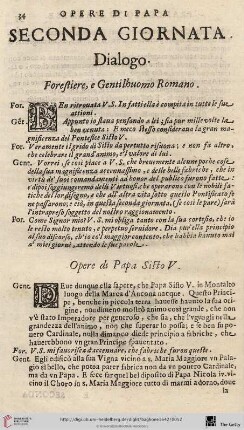 34 OPERE DI PAPA
SECONDA GIORNATA.
Dialogo.
Forestiere, e Gentilhuomo Romano.
For. BEn ritrouata V. S. In fatti ella è compita in tutte le sue
attioni.
Gẽt. Appunto io staua pensando a lei; sia pur mille volte la
ben venuta: E meco stesso considerauo la gran ma-
gnificenza del Pontefice Sisto V.
For. Veramente il grido di Sisto da per tutto risuona; e non fa altro,
che celebrare il grand'animo, e'l valore di lui.
Gent. Vorrei, se così piace a V. S. che breuemente alcune poche cose
della sua magnificenza accennassimo, e delle belle fabriche, che in
virtù de' suoi comandamenti ad honor del publico furono fatte:
e dipoi soggiungeremo dell'
che l'ordine, che all'altra
seconda giornata, (se così le pare) sarà
l'intrapreso soggetto del nostro ragionamento.
For. Come Signor mio? V. S. mi obliga tanto con la sua cortesia, che io
le resto molto tenuto, e perpetuo seruidore. Dia pur ella principio
al suo discorso, ch'io
Opere di Papa Sisto V.
Gent. DEue dunque ella sapere, che Papa Sisto V. in Montalto
luogo della Marca d'Ancona nacque. Questo Princi-
pe, benche in piccola terra hauesse hauuto la sua ori-
gine, nondimeno mostrò animo così grande, che non
v'è stato Imperadore per generoso, che sia, che l'agguagli nella
grandezza dell'animo, non che superar lo possa; e se bene fu po-
uero Cardinale, nulla dimeno diede principio a fabriche, che
hauerebbono vn gran Principe spauentato.
For. V. S. mi fauorisca d'accennarmi, che fabriche furono queste.
Gent. Egli edificò alla sua Vigna vicino a S. Maria Maggiore vn Pala-
gio sì bello, che potea parer fabrica non da vn pouero Cardinale,
ma da vn Papa. E fece far quel bel diposito di Papa Nicola iv. vi-
cino il Choro in s. Maria Maggiore tutto di marmi adorno, doue
la